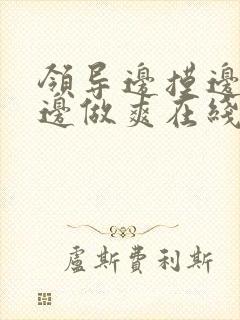 領导邊摸邊
邊做爽在綫
盧斯費利斯